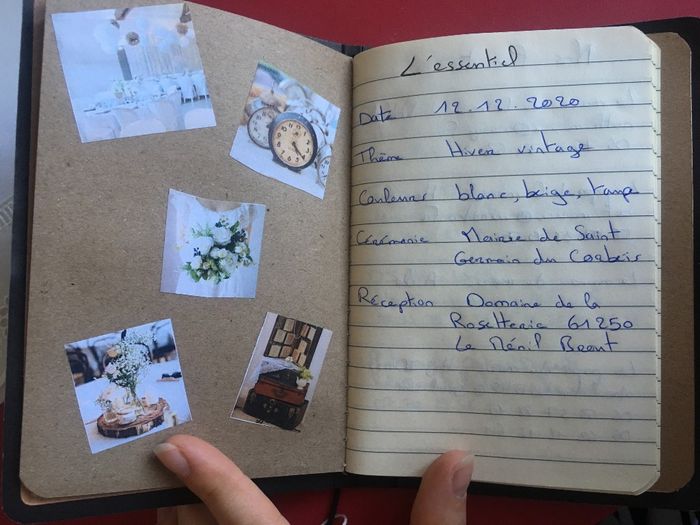 L'essentiel
Date 12.12.2020
Thème Hiver vintage
Couleurs blanc, beige, taupe
Cérémonie Mairie de Saint
Germain du Corbeis
Réception Domaine de la
Rosetterie 61250
Le Ménil Brout